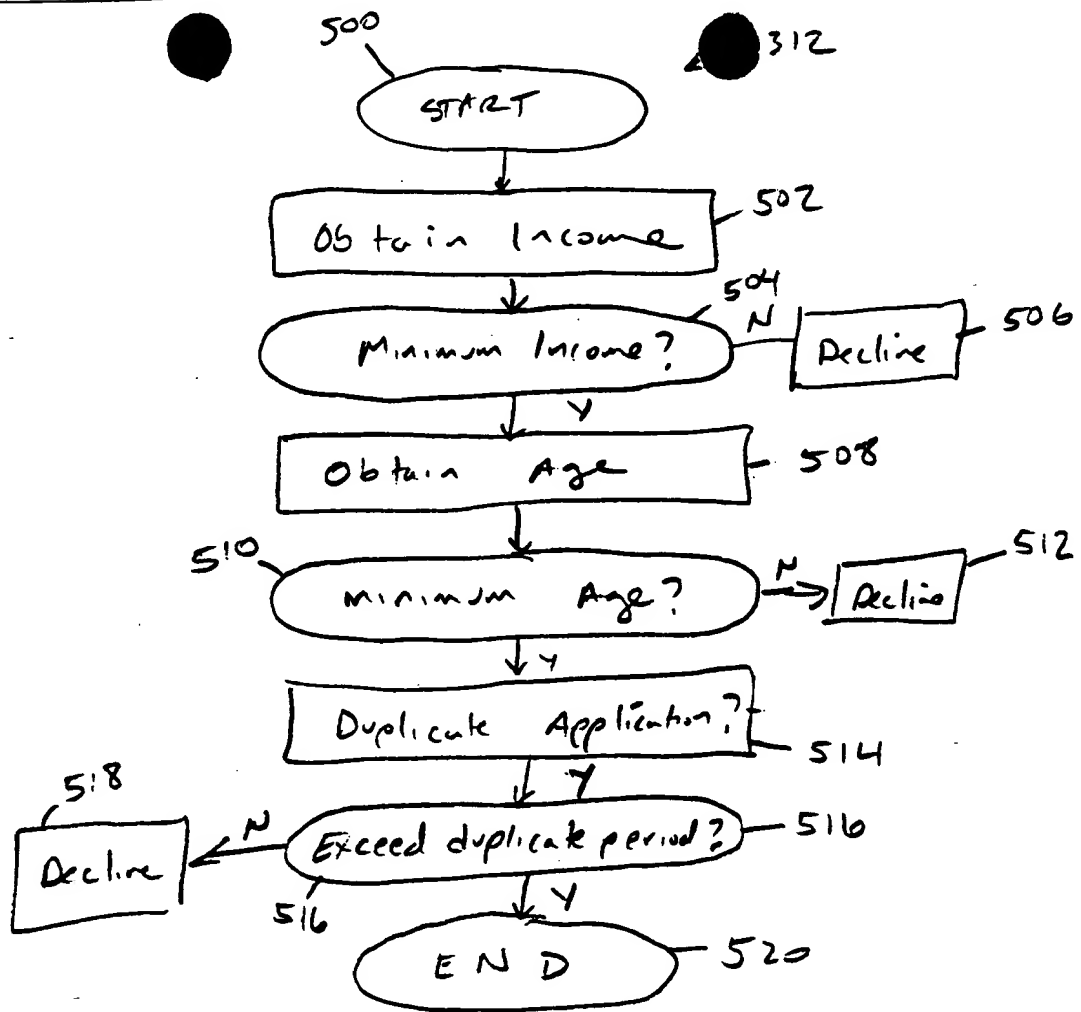 500
312
START
502
Obtain Income
504
Minimum Income?
N
Decline
506
Y
Obtain Age
508
510
Minimum Age?
N
Decline
512
Y
Duplicate Application?
514
Y
518
Decline
N
Exceed duplicate period?
516
516
Y
END
520